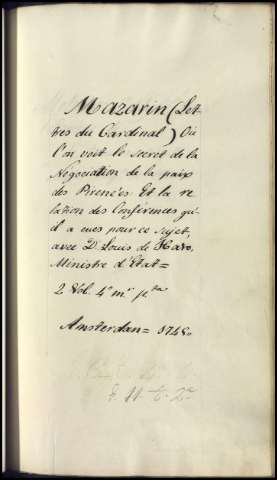 Mazarin (Let-
tres du Cardinal) Où
l'on voit le secret de la
Negociation de la paix
des Pirenées Et la re
lation des Conférences qu'-
il a eues pour ce sujet,
avec D. Louis de Haro,
Ministre d'Etat=
2 Vol. 4º mº pta
Amsterdan= 1745.